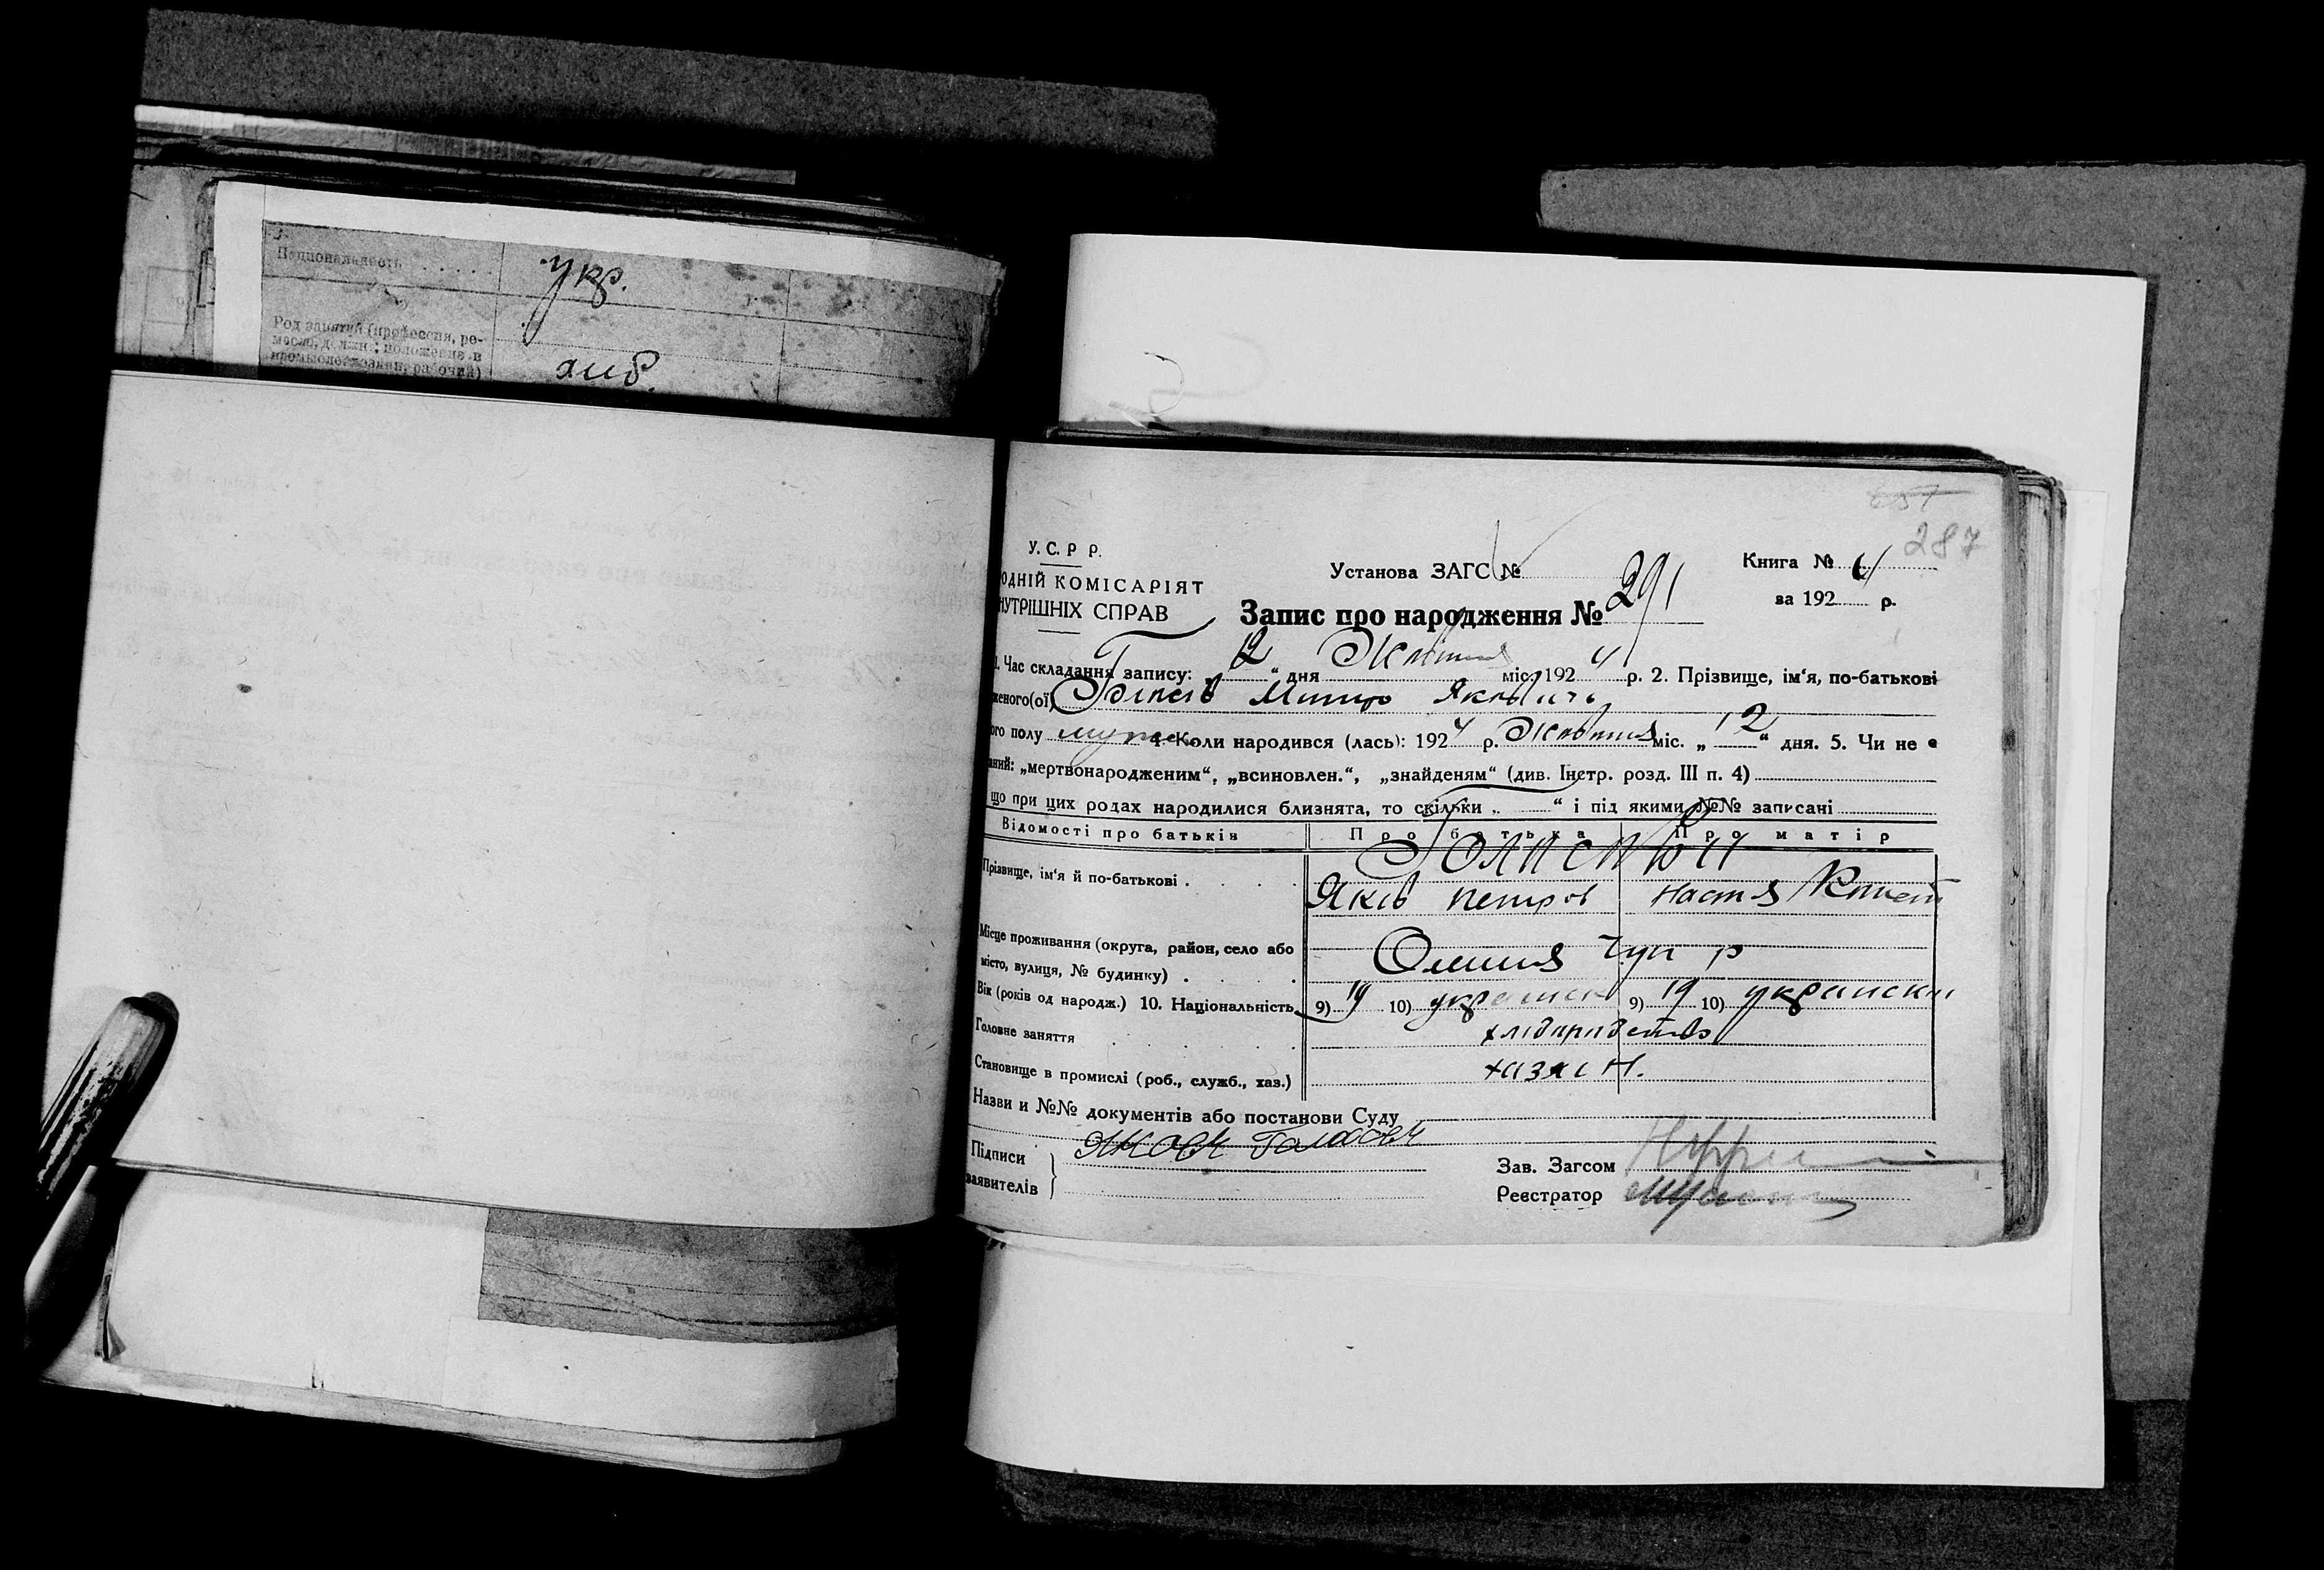 Национальность . . . . . укр.
Род занятий (профессия, ре-
месло, должн.; положение в
промысле: хозяин, рабочий) хлб.
287
У. С. Р Р.
Установа ЗАГС №
Книга № 4
ОДНІЙ КОМІСАРІЯТ
НУТРІШНІХ СПРАВ
Запис про народження № 291
за 192 р.
1. Час складання запису: 12 “ дня Жовтня міс. 192 4 р. 2. Прізвище, ім‘я, по-батькові
женого(ої) Митро Якович
ого полу муж. 4. Коли народився (лась): 192 4 р. Жовтня міс. „ 12 “ дня. 5. Чи не є
аний: „мертвонародженим“, „всиновлен.“, „знайденям“ (див. Інстр. розд. III п. 4)
що при цих родах народилися близнята, то скільки „ “ і під якими №№ записані
Відомості про батьків Про батька Про матір
Прізвище, ім‘я й по-батькові . . . .
Яків Петров Настя
Місце проживання (округа, район, село або
місто, вулиця, № будинку) . . р
Вік (років од народж.) 10. Національність 9) 19 10) украинск 9) 19 10) украински
Головне заняття . . . . . хлібороб
Становище в промислі (роб., служб., хаз.) хазяїн.
Назви и №№ документів або постанови Суду
Підписи
заявителів
Зав. Загсом
Реєстратор